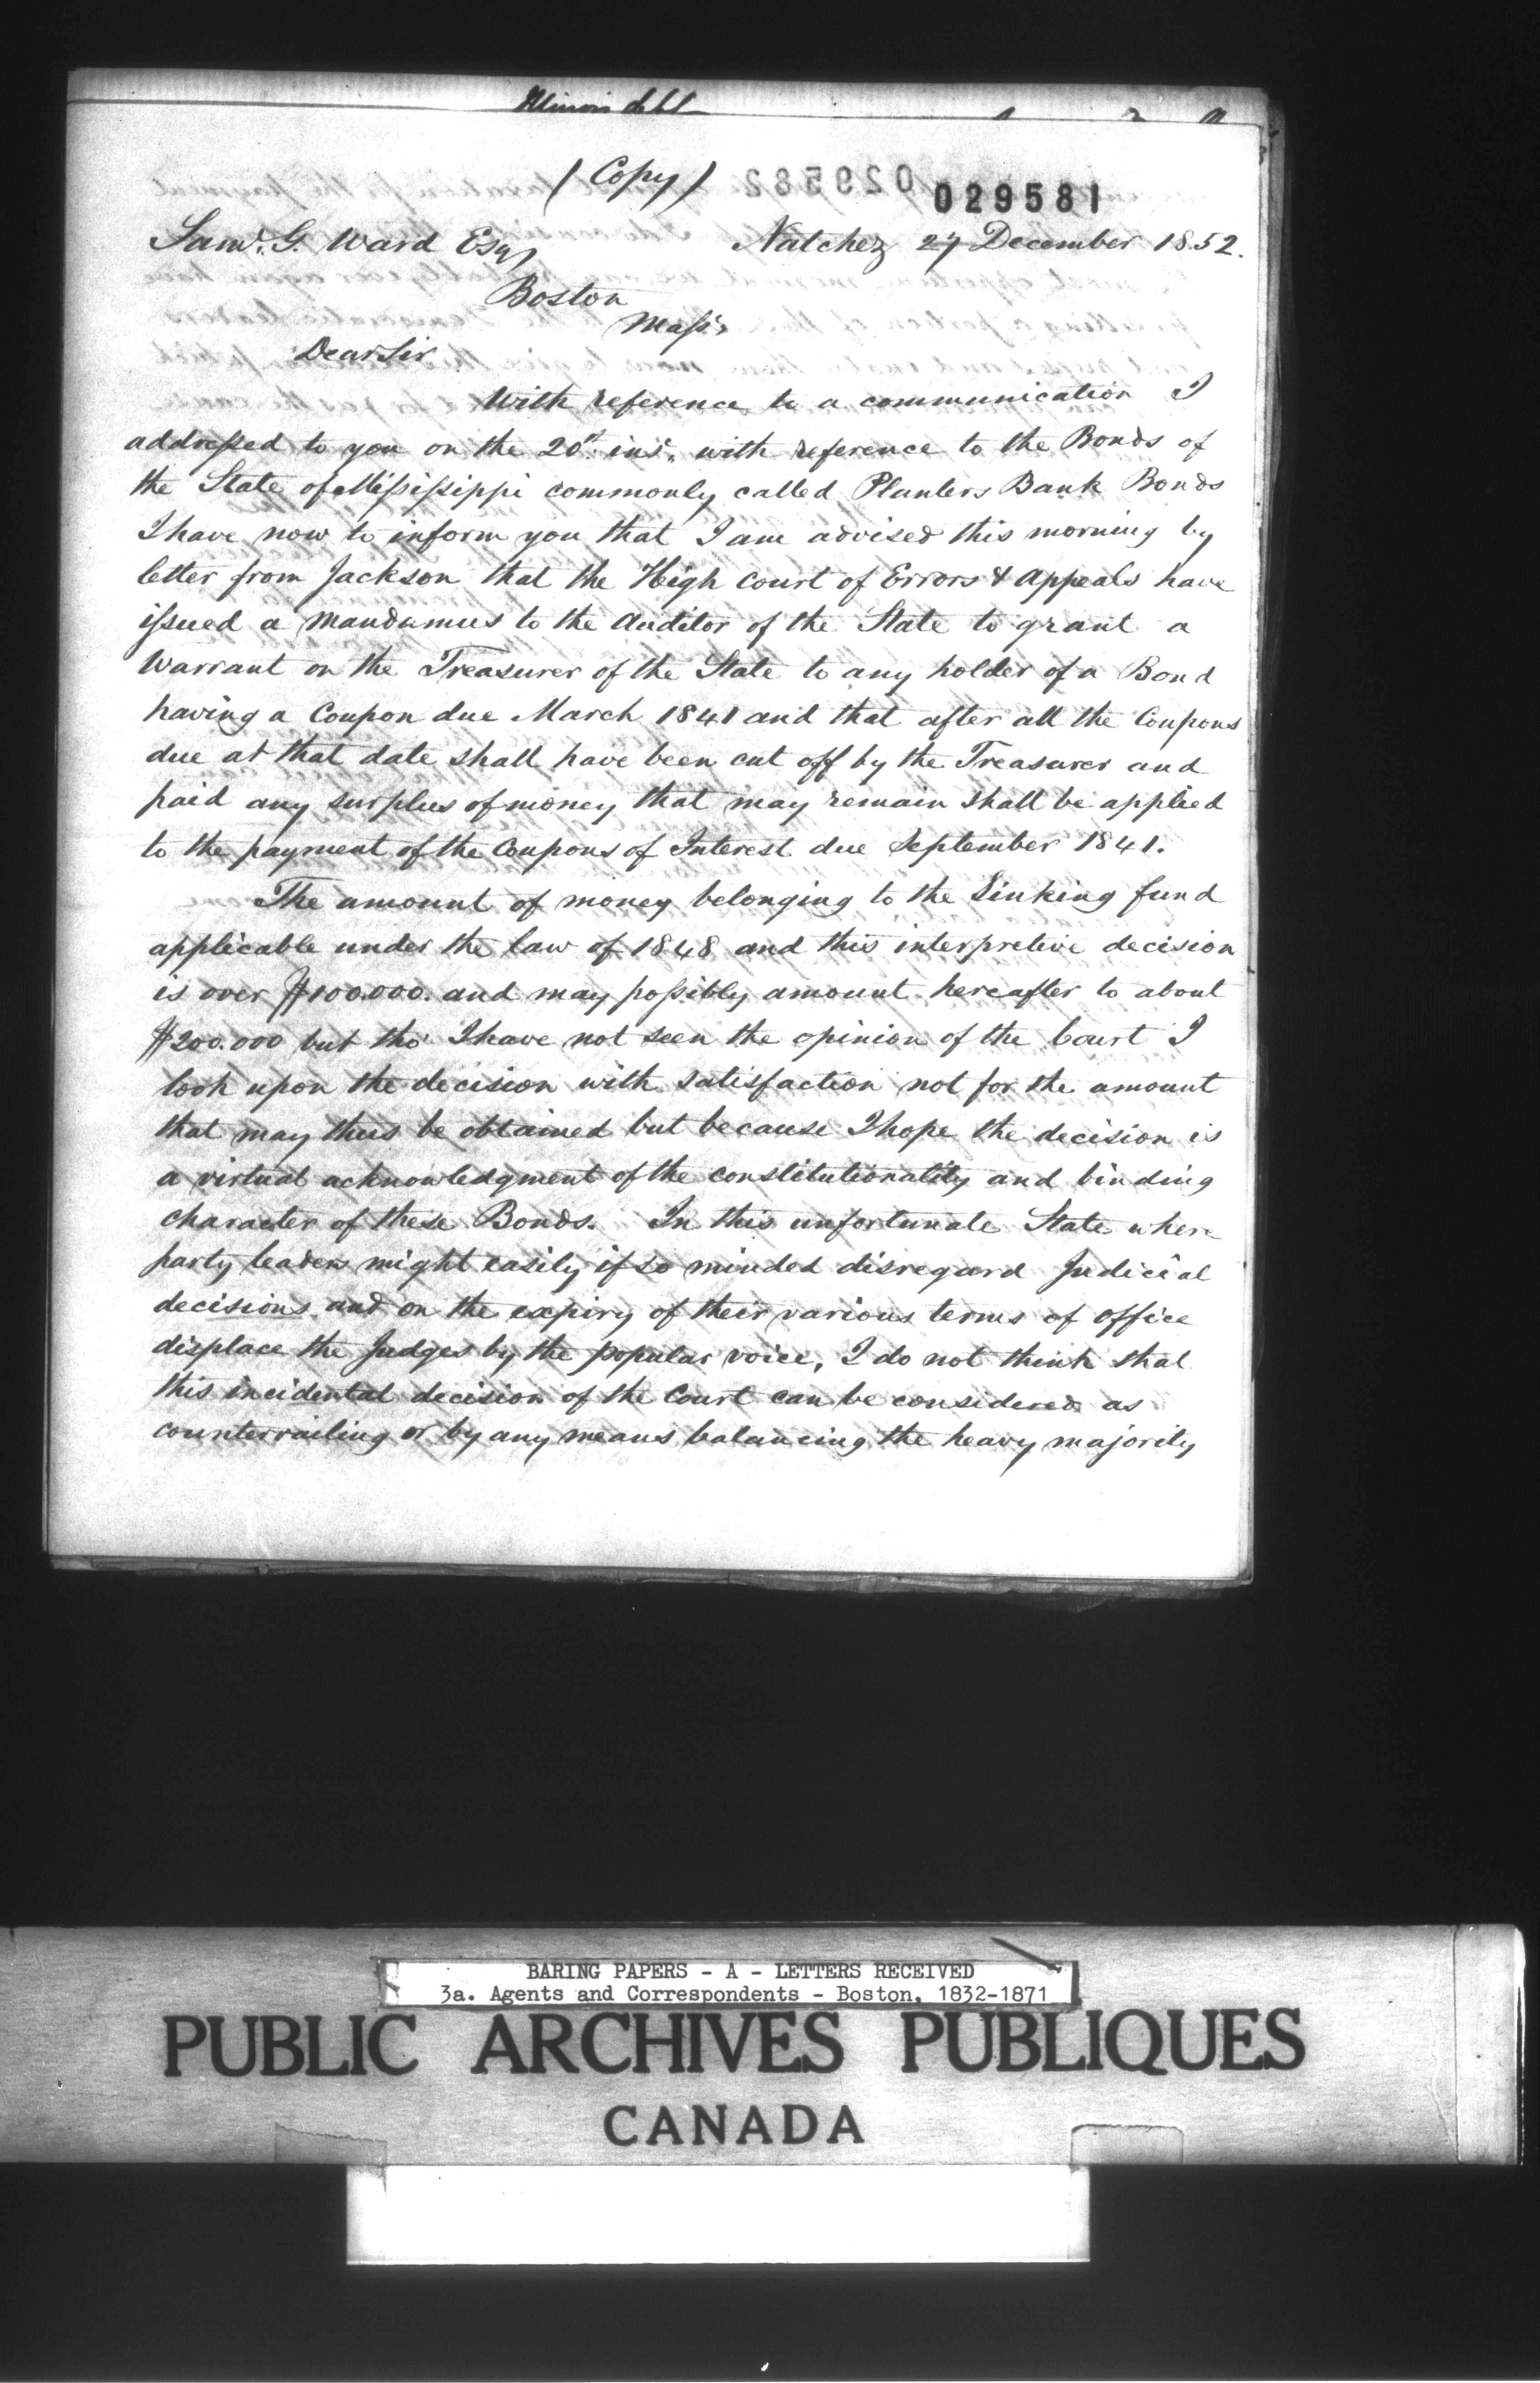 Illinois debt
(Copy)
029582
029581
Saml. G. Ward Esqr
Natchez 27 December 1852.
Boston
Masss
Dear Sir
With reference to a communication I
addressed to you on the 20th inst. with reference to the Bonds of
the State of Mississippi commonly called Planters Bank Bonds
I have now to inform you that I am advised this morning by
letter from Jackson that the High Court of Errors & Appeals have
issued a Mandamus to the Auditor of the State to grant a
Warrant on the Treasurer of the State to any holder of a Bond
having a Coupon due March 1841 and that after all the Coupons
due at that date shall have been cut off by the Treasurer and
paid any surplus of money that may remain shall be applied
to the payment of the Coupons of Interest due September 1841.
The amount of money belonging to the Sinking fund
applicable under the law of 1848 and this interpretive decision
is over $100.000. and may possibly amount hereafter to about
$200.000 but tho' I have not seen the opinion of the Court I
look upon the decision with satisfaction not for the amount
that may thus be obtained but because I hope the decision is
a virtual acknowledgment of the constitutionality and binding
character of these Bonds. In this unfortunate State where
party leaders might easily if so minded disregard Judicial
decisions and on the expiry of their various terms of office
displace the Judges by the popular voice, I do not think that
this incidental decision of the Court can be considered as
countervailing or by any means balancing the heavy majority
BARING PAPERS - A - LETTERS RECEIVED
3a. Agents and Correspondents - Boston, 1832-1871
PUBLIC ARCHIVES PUBLIQUES
CANADA